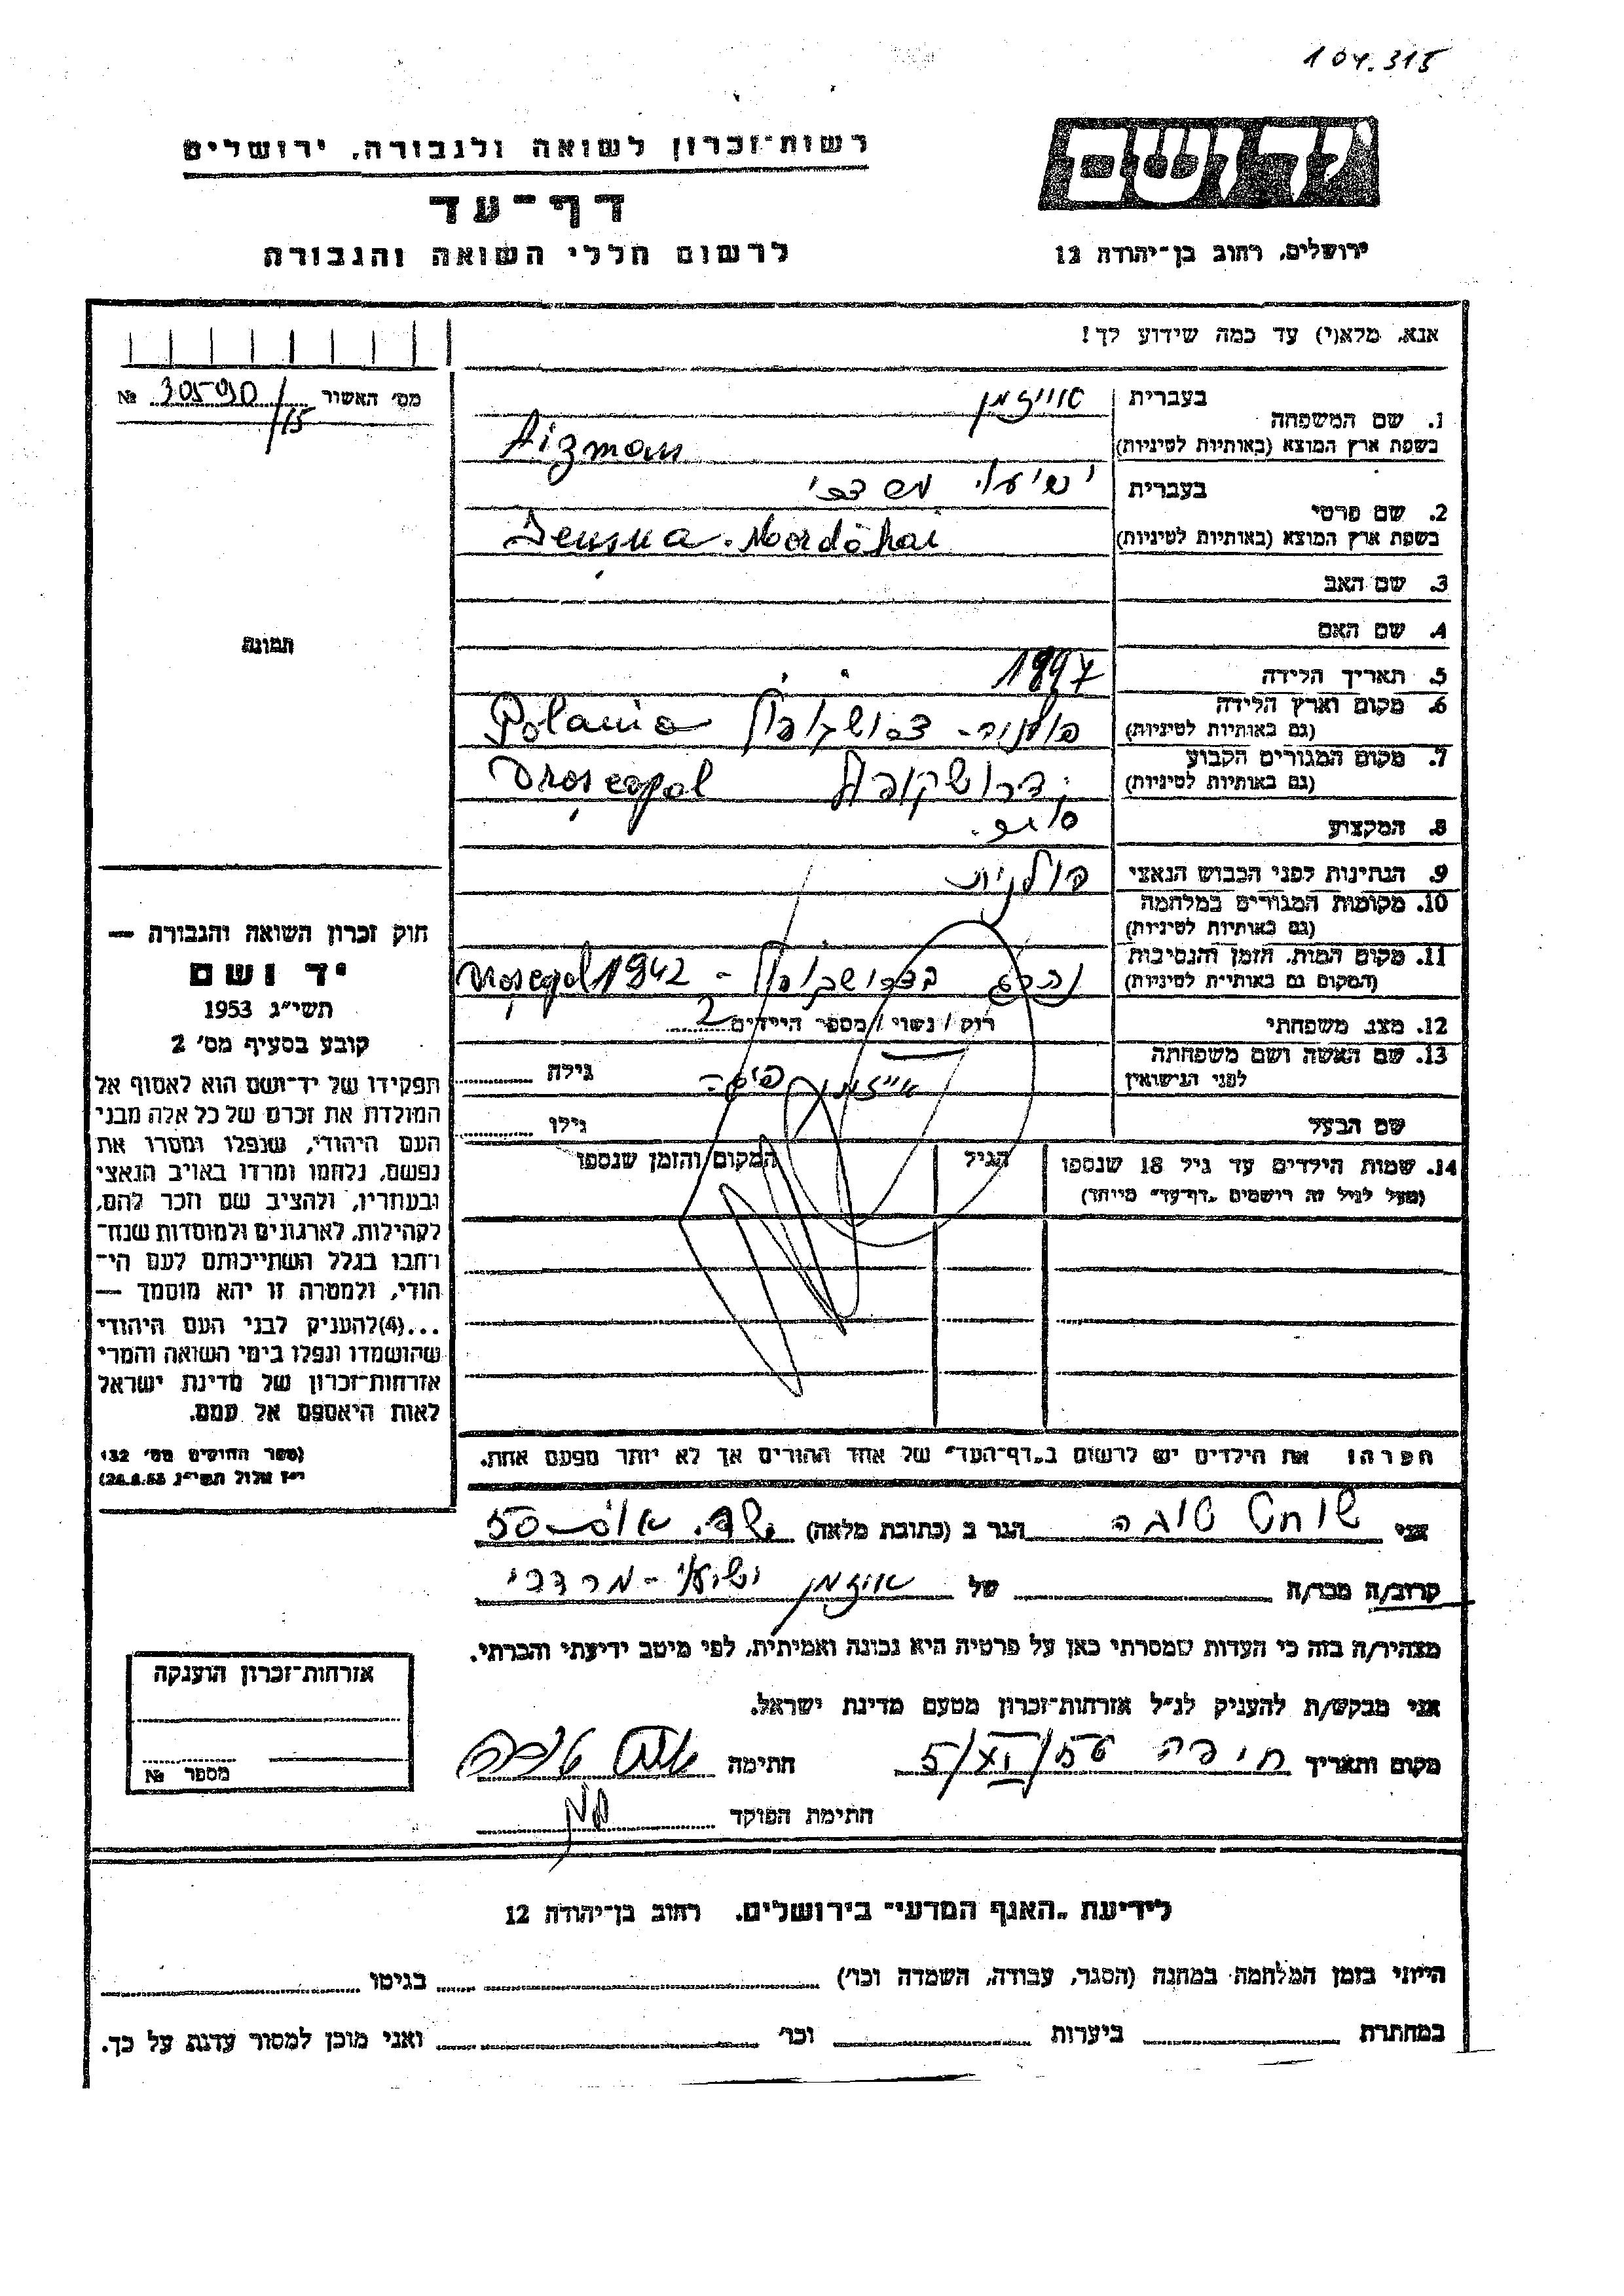 104.315
יד ושם
רשות־זכרון לשואה ולגבורה, ירושלים
דף־עד
לרשום חללי השואה והגבורה
ירושלים, רחוב בן־יהודה 12
אנא, מלא(י) עד כמה שידוע לך!
מס׳ האשור 30590/115 №
תמונה
1. שם המשפחה
בעברית אייזמן
בשפת ארץ המוצא (באותיות לטיניות) Aizman
2. שם פרטי
בעברית ישועי מרדכי
בשפת ארץ המוצא (באותיות לטיניות) Mordohai
3. שם האב
4. שם האם
5. תאריך הלידה 1897
6. מקום וארץ הלידה
(גם באותיות לטיניות) Polania
7. מקום המגורים הקבוע
(גם באותיות לטיניות) Droscopol
8. המקצוע
9. הנתינות לפני הכבוש הנאצי פולנית
10. מקומות המגורים במלחמה
(גם באותיות לטיניות)
11. מקום המות, הזמן והנסיבות
(המקום גם באותיות לטיניות) נהרג 1942 -
12. מצב משפחתי רוק / נשוי / מספר הילדים 2
13. שם האשה ושם משפחתה
לפני הנישואין אייזמן גילה
שם הבעל גילו
14. שמות הילדים עד גיל 18 שנספו הגיל המקום והזמן שנספו
(מעל לגיל זה רישמים „דף־עד״ מיוחד)
חוק זכרון השואה והגבורה —
יד ושם
תשי״ג 1953
קובע בסעיף מס׳ 2
תפקידו של יד־ושם הוא לאסוף אל
המולדת את זכרם של כל אלה מבני
העם היהודי, שנפלו ומסרו את
נפשם, נלחמו ומרדו באויב הנאצי
ובעוזריו, ולהציב שם וזכר להם,
לקהילות, לארגונים ולמוסדות שנח־
רחבו בגלל השתייכותם לעם הי־
הודי, ולמטרה זו יהא מוסמך —
...(4)להעניק לבני העם היהודי
שהושמדו ונפלו בימי השואה והמרי
אזרחות־זכרון של מדינת ישראל
לאות היאספם אל עמם.
(ספר החוקים מס׳ 132
י״ז אלול תשי״ג 28.8.53)
הערה: את הילדים יש לרשום ב„דף־העד״ של אחד ההורים אך לא יותר מפעם אחת.
אני שוחט טובה הגר ב (כתובת מלאה) 50
קרוב/ה מכר/ה של אייזמן ישועי - מרדכי
מצהיר/ה בזה כי העדות שמסרתי כאן על פרטיה היא נכונה ואמיתית, לפי מיטב ידיעתי והכרתי.
אני מבקש/ת להעניק לנ״ל אזרחות־זכרון מטעם מדינת ישראל.
מקום ותאריך חיפה 5/XI/56 חתימה
חתימת הפוקד
אזרחות־זכרון הוענקה
מספר №
לידיעת „האגף המדעי״ בירושלים, רחוב בן־יהודה 12
הייתי בזמן המלחמה במחנה (הסגר, עבודה, השמדה וכו׳) בגיטו
במחתרת ביערות וכו׳ ואני מוכן למסור עדות על כך.